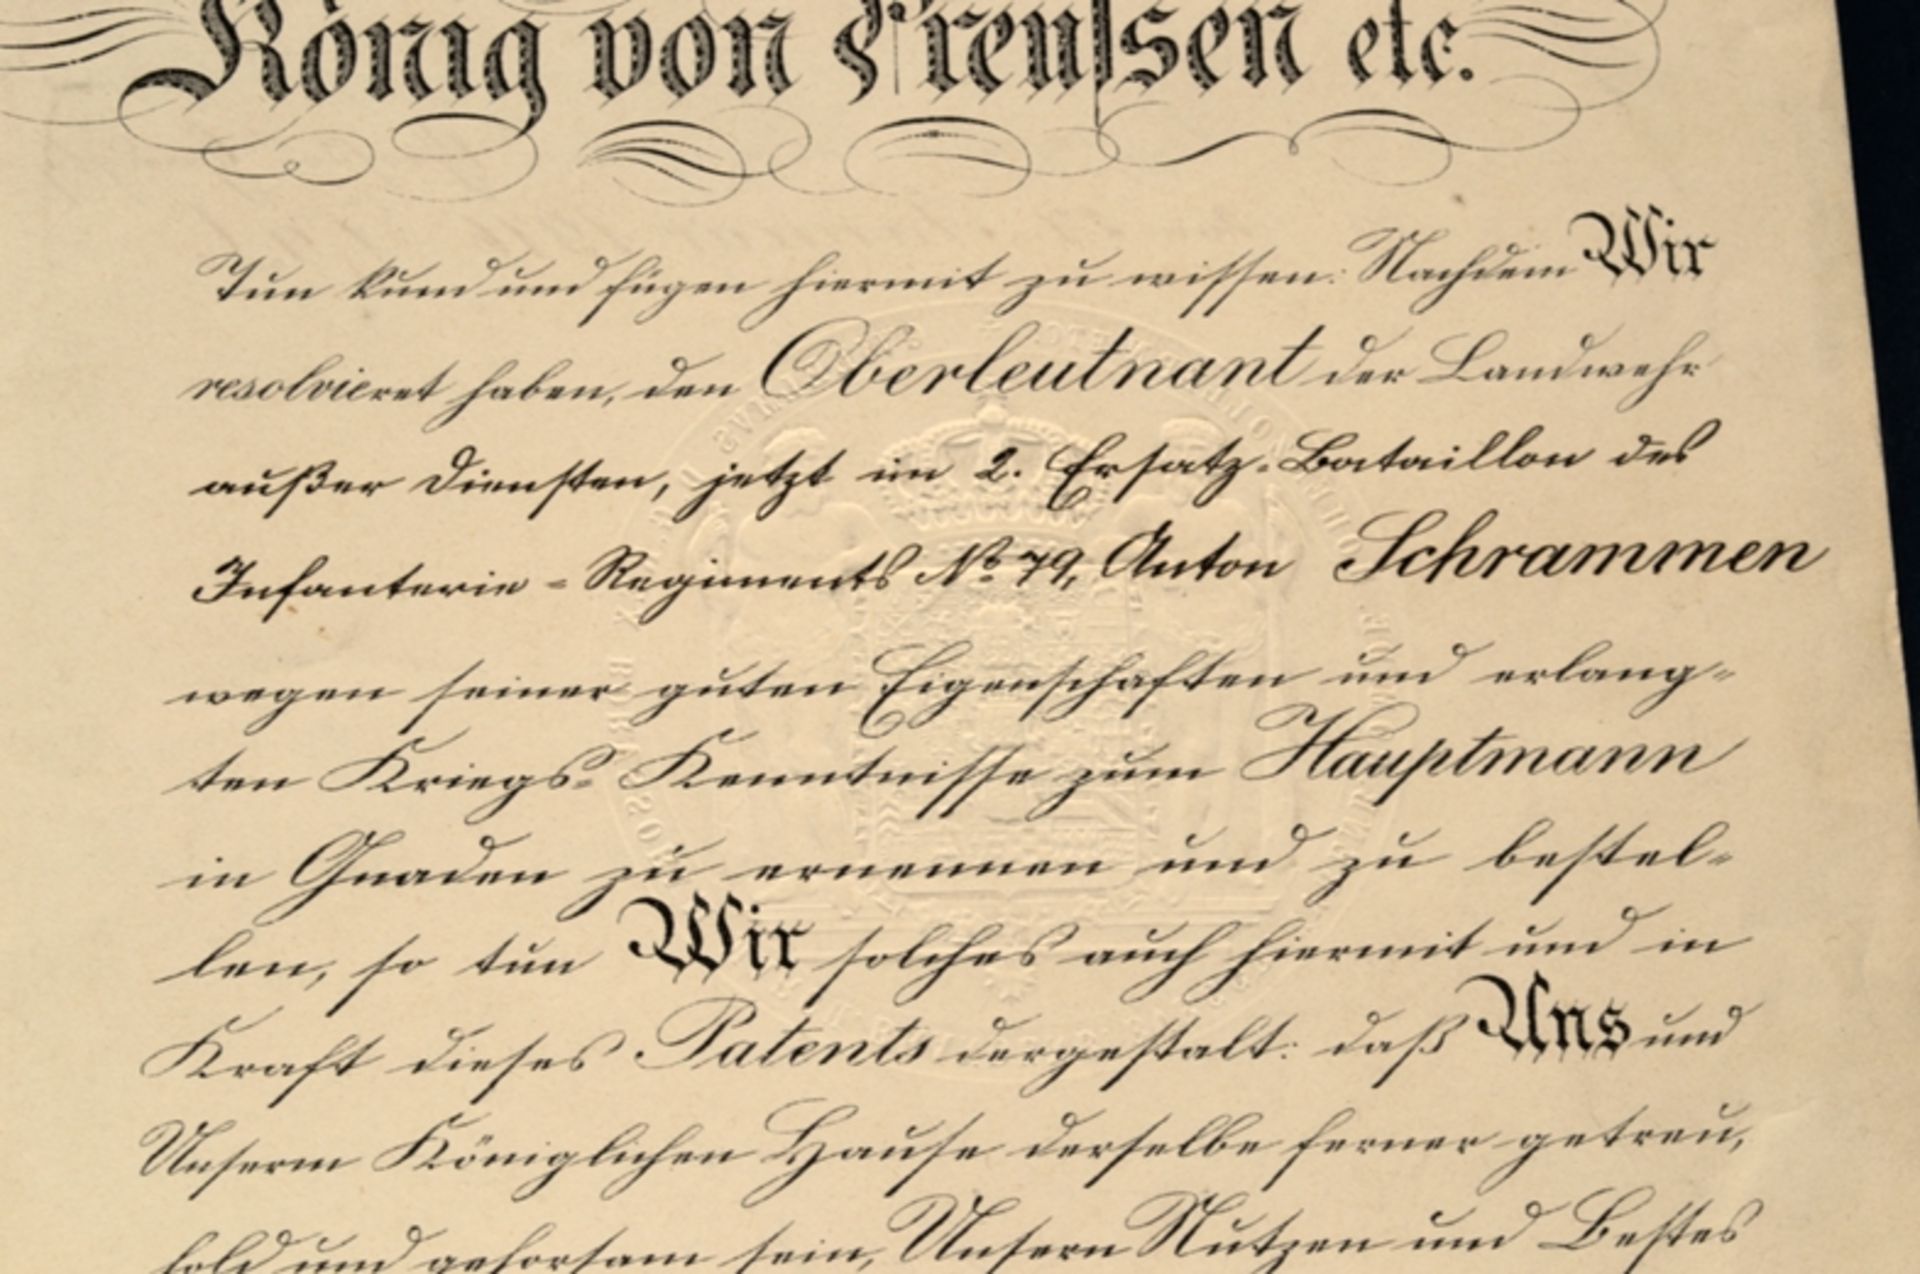 König von Preussen etc.
Tun kund und fügen hiermit zu wissen: Nachdem Wir
resolvieret haben, den Oberleutnant der Landwehr
außer Diensten, jetzt im 2. Ersatz-Bataillon des
Infanterie-Regiments No 79, Anton Schrammen
wegen seiner guten Eigenschaften und erlang-
ten Kriegs-Kenntnisse zum Hauptmann
in Gnaden zu ernennen und zu bestel-
len, so tun Wir solches auch hiermit und in
Kraft dieses Patents dergestalt: daß Uns und
Unserm Königlichen Hause derselbe ferner getreu,
hold und gehorsam sein, Unsern Nutzen und Bestes